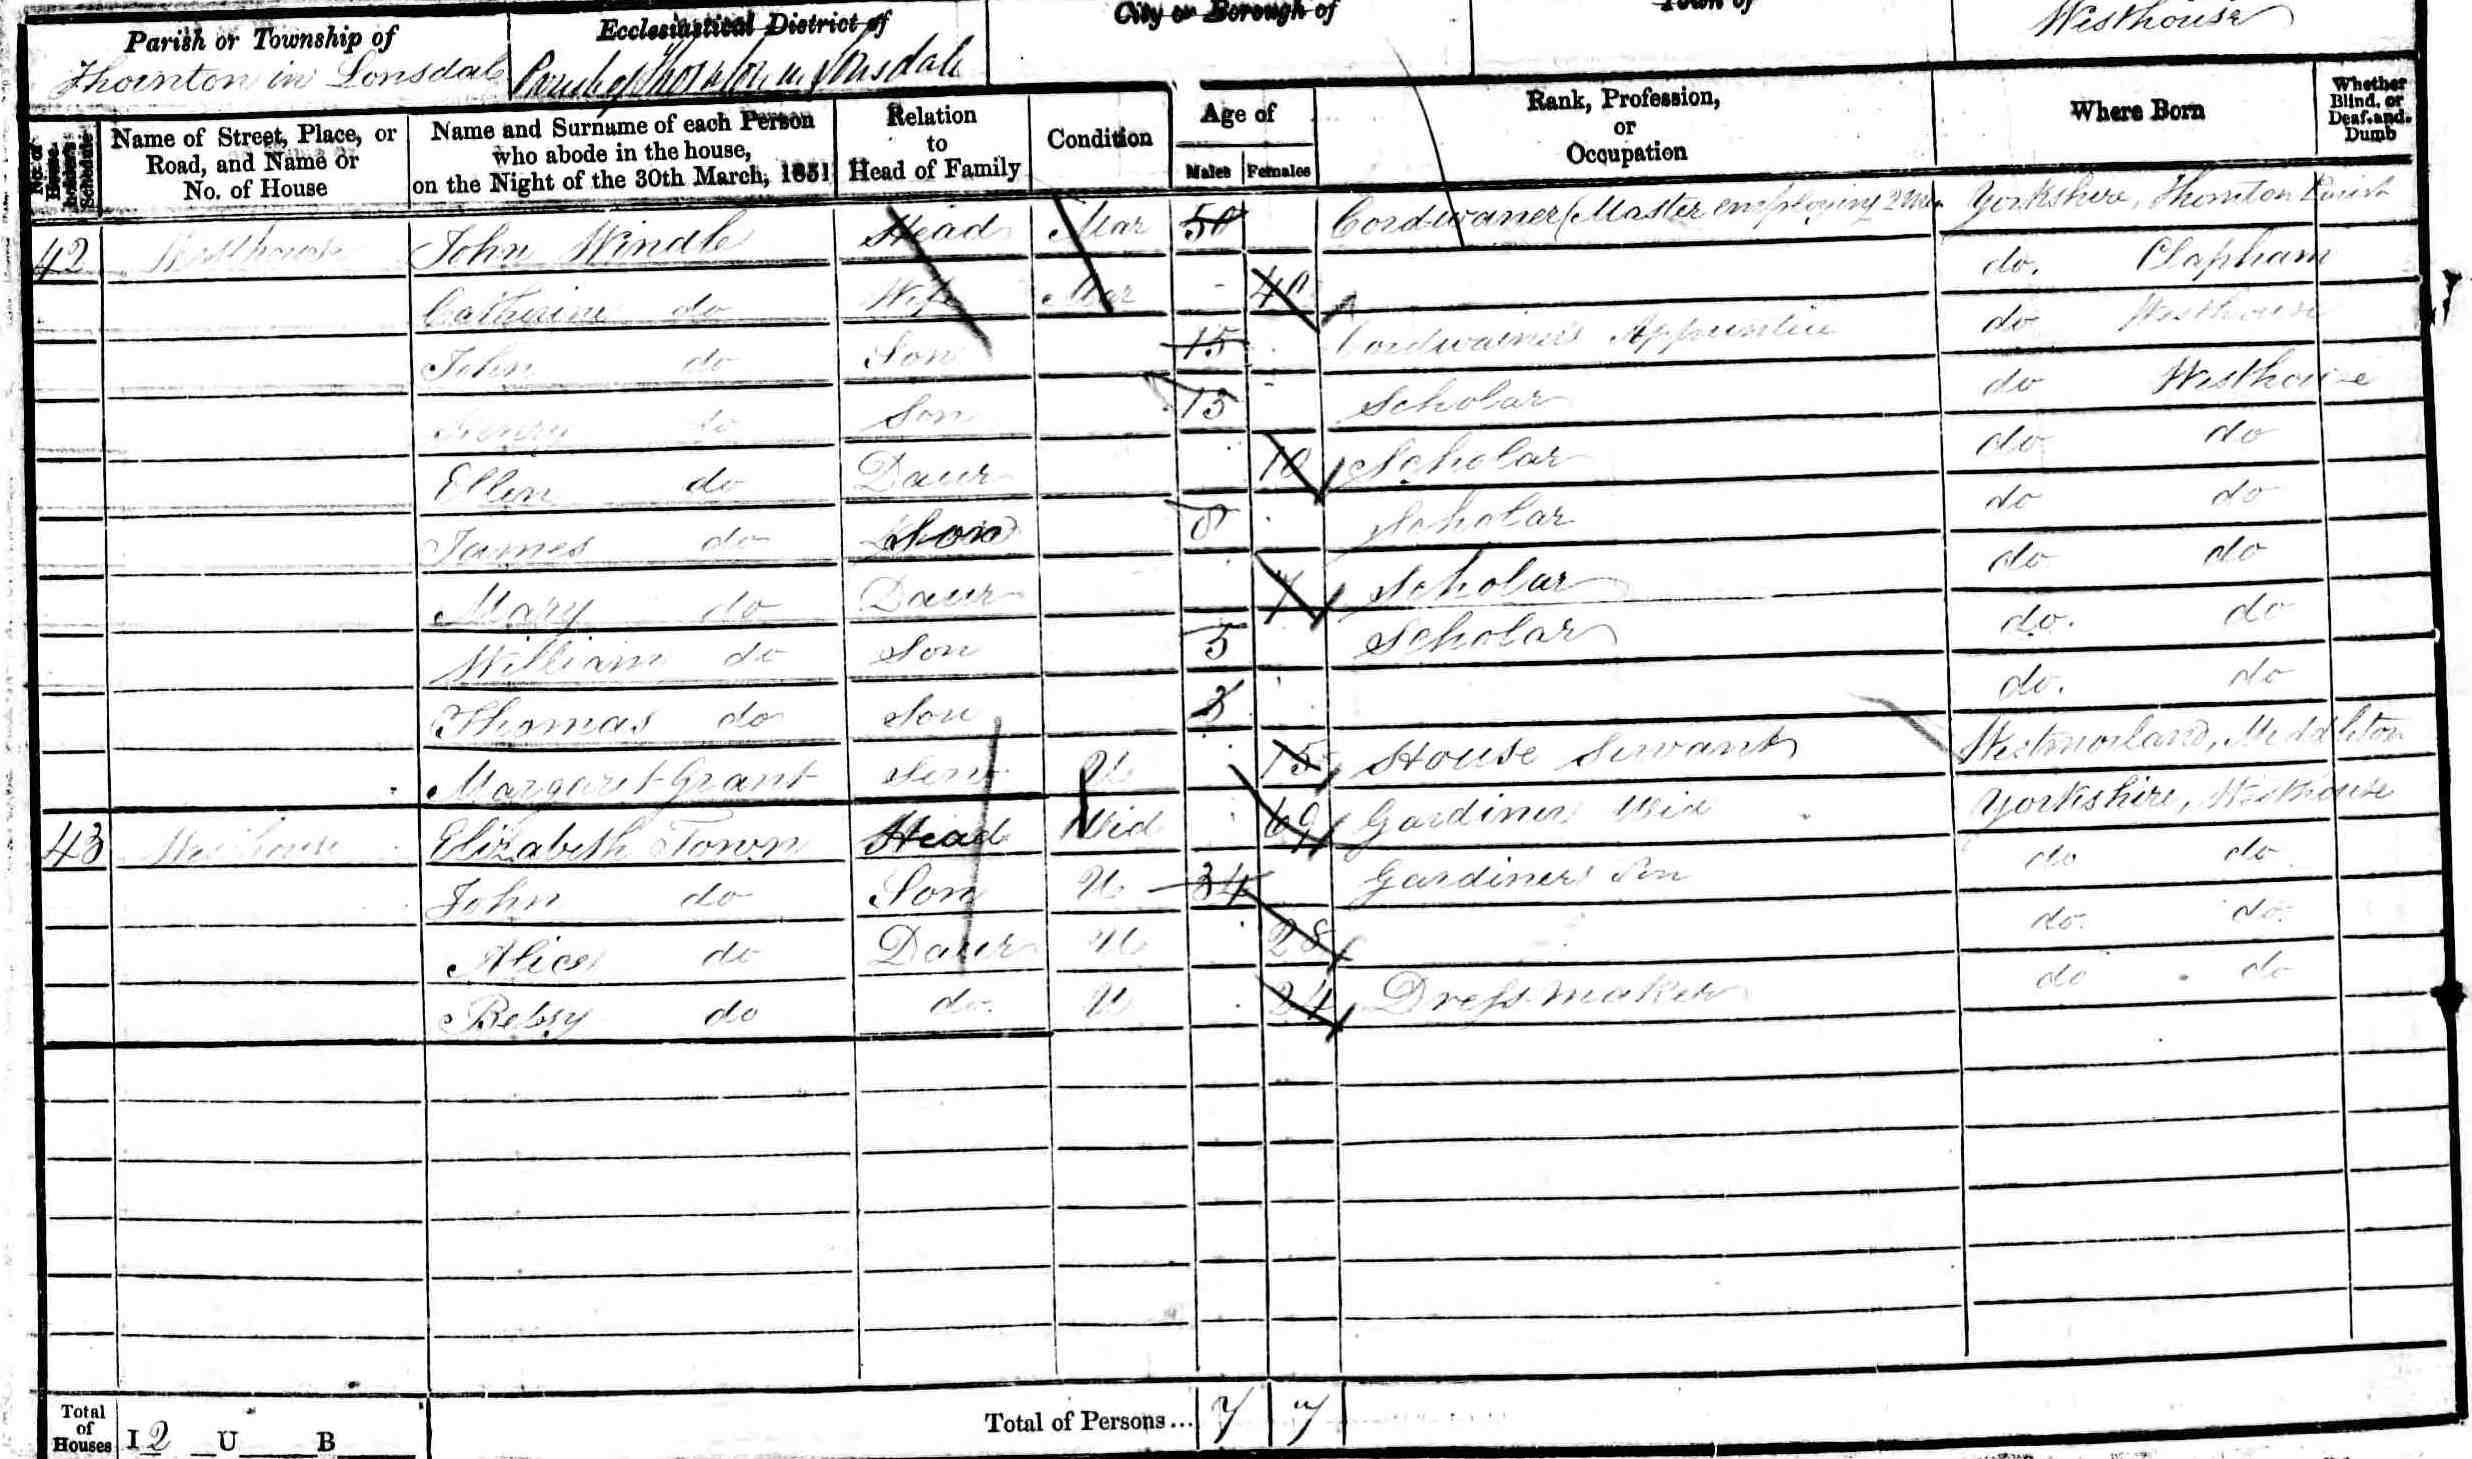 Parish or Township of
Ecclesiastical District of
City or Borough of
Town of
Westhouse
Thornton in Lonsdale
Parish of Thornton in Lonsdale
No. of House-holder's Schedule
Name of Street, Place, or Road, and Name or No. of House
Name and Surname of each Person who abode in the house, on the Night of the 30th March, 1851
Relation to Head of Family
Condition
Age of
Males Females
Rank, Profession, or Occupation
Where Born
Whether Blind, or Deaf-and-Dumb
42 Westhouse John Windle Head Mar 50 Cordwaner (Master employing 2 Men Yorkshire, Thornton Parish
Catherine do Wife Mar 40 do. Clapham
John do Son 15 Cordwainer's Apprentice do Westhouse
Henry do Son 13 Scholar do Westhouse
Ellen do Daur 10 Scholar do do
James do Son 8 Scholar do do
Mary do Daur 7 Scholar do do
William do Son 5 Scholar do. do
Thomas do Son 3 do. do
Margaret Grant Serv U 15 House Servant Westmorland, Middleton
43 Westhouse Elizabeth Town Head Wid 69 Gardiners Wid Yorkshire, Westhouse
John do Son U 34 Gardiners Son do do
Alice do Daur U 28 do. do.
Betsy do do. U 24 Dress maker do do
Total of Houses I 2 U B Total of Persons... 7 7